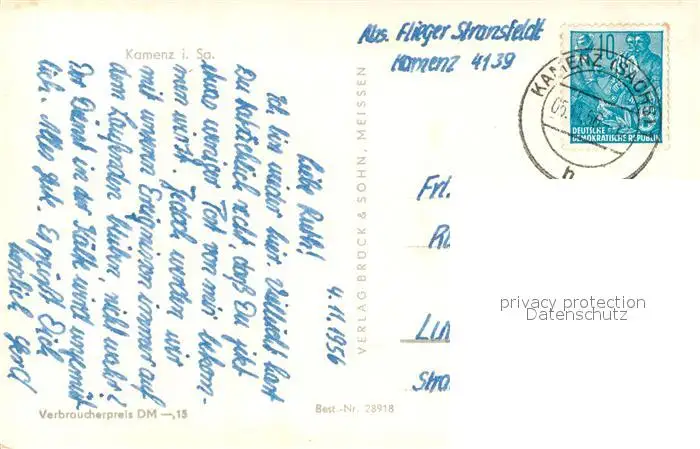 Kamenz i. Sa.
Abs. Flieger Stransfeldt
Kamenz 4139
10
KAMENZ (SACHS)
DEUTSCHE
DEMOKRATISCHE REPUBLIK
h
4.11.1956
Liebe Ruth!
Ich bin wieder hier. Vielleicht hast
Du tatsächlich recht, daß Du jetzt
etwas weniger Post von mir bekom-
men wirst. Jedoch werden wir
mit unseren Ereignissen immer auf
dem Laufenden bleiben, nicht wahr?
Der Dienst in der Kälte wird ungemüt-
lich. Alles gute. Es grüßt Dich
herzlich Gerd
VERLAG BRÜCK & SOHN, MEISSEN
Frl.
Stra
privacy protection
Datenschutz
Verbraucherpreis DM —,15
Best.-Nr. 28918